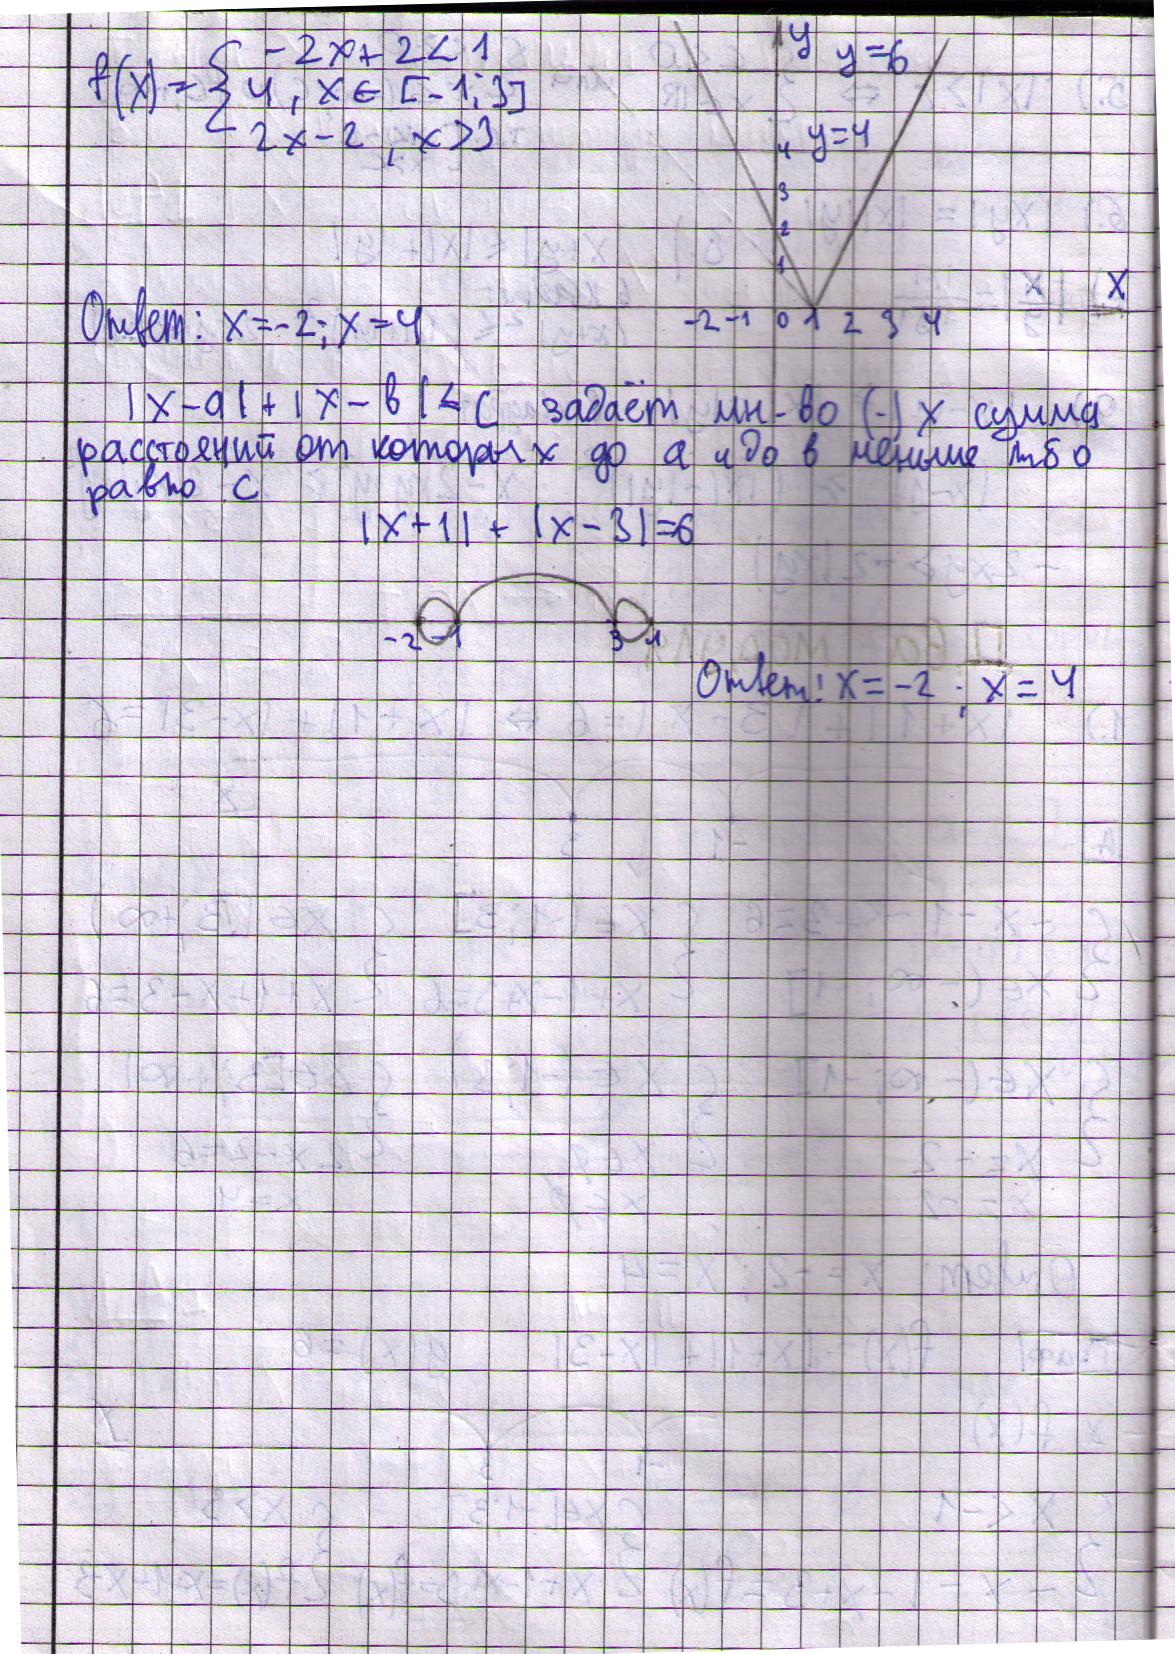 f(x) = { -2x+2 < 1
4, x ∈ [-1; 3]
2x-2, x > 3
y
y=6
y=4
4
3
2
1
x
-2 -1 0 1 2 3 4
Ответ: x=-2; x=4
|x-a|+|x-в| ≤ c задаёт мн-во (·) x сумма
расстояний от которых до а и до в меньше либо
равно с
|x+1| + |x-3|=6
-2 -1 3 4
Ответ: x=-2; x=4